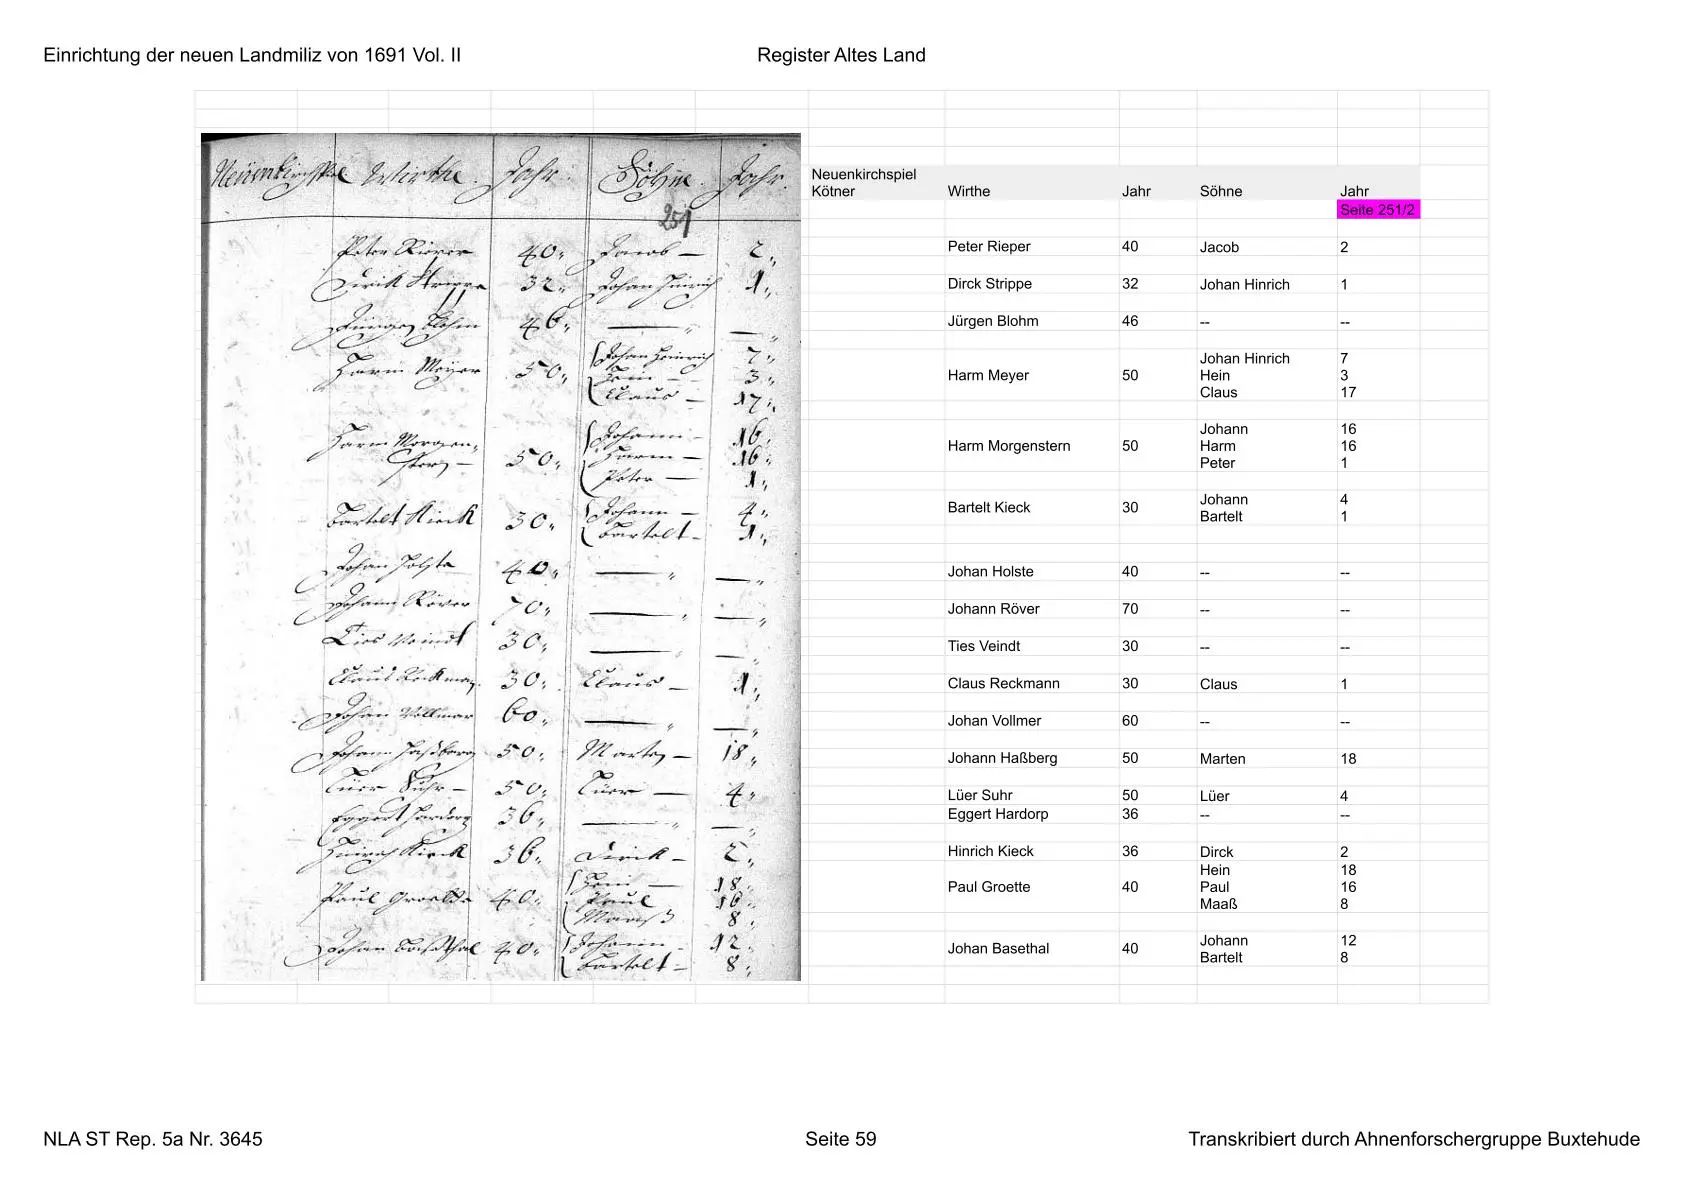 Einrichtung der neuen Landmiliz von 1691 Vol. II
Register Altes Land
Neuenkirchspiel Wirthe. Jahr. Söhne. Jahr.
251
Peter Röver 40,, Jacob — 2,,
Dirik Strippe 32,, Johan Hinrich 1,,
Jürgen Blohm 46,, — ,, — ,,
Harm Meÿer 50,, Johan Heinrich 7,,
Hein — 3,,
Claus — 17,,
Harm Morgen,,
stern — 50,, Johann — 16,,
Harm — 16,,
Peter — 1,,
Bartelt Kieck 30,, Johann — 4,,
Bartelt — 1,,
Johan Holste 40,, — ,, — ,,
Johann Röver 70,, — ,, — ,,
Ties Veindt 30,, — ,, — ,,
Claus Reckman 30,, Claus — 1,,
Johan Vollmer 60,, — ,, — ,,
Johann Haßberg 50,, Marten — 18,,
Lüer Suhr — 50,, Lüer — 4,,
Eggert Hardorp 36,, — ,, — ,,
Hinrich Kieck 36,, Dirick — 2,,
Paul Groette 40,, Hein — 18,,
Paul 16,,
Maaß 8,,
Johan Basethal 40,, Johann — 12,,
Bartelt — 8,,
Neuenkirchspiel
Kötner Wirthe Jahr Söhne Jahr
Seite 251/2
Peter Rieper 40 Jacob 2
Dirck Strippe 32 Johan Hinrich 1
Jürgen Blohm 46 -- --
Johan Hinrich 7
Harm Meyer 50 Hein 3
Claus 17
Johann 16
Harm Morgenstern 50 Harm 16
Peter 1
Johann 4
Bartelt Kieck 30 Bartelt 1
Johan Holste 40 -- --
Johann Röver 70 -- --
Ties Veindt 30 -- --
Claus Reckmann 30 Claus 1
Johan Vollmer 60 -- --
Johann Haßberg 50 Marten 18
Lüer Suhr 50 Lüer 4
Eggert Hardorp 36 -- --
Hinrich Kieck 36 Dirck 2
Hein 18
Paul Groette 40 Paul 16
Maaß 8
Johann 12
Johan Basethal 40 Bartelt 8
NLA ST Rep. 5a Nr. 3645
Seite 59
Transkribiert durch Ahnenforschergruppe Buxtehude